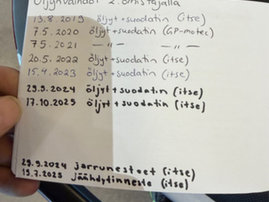 Öljynvaihdot 2. omistajalla
13.8.2019 öljyt+suodatin (itse)
7.5.2020 öljyt+suodatin (GP-motec)
7.5.2021 —〃— —〃—
20.5.2022 öljyt+suodatin (itse)
15.4.2023 öljyt+suodatin (itse)
29.9.2024 öljyt+suodatin (itse)
17.10.2025 öljyt+suodatin (itse)
29.9.2024 jarrunesteet (itse)
15.7.2025 jäähdytinneste (itse)